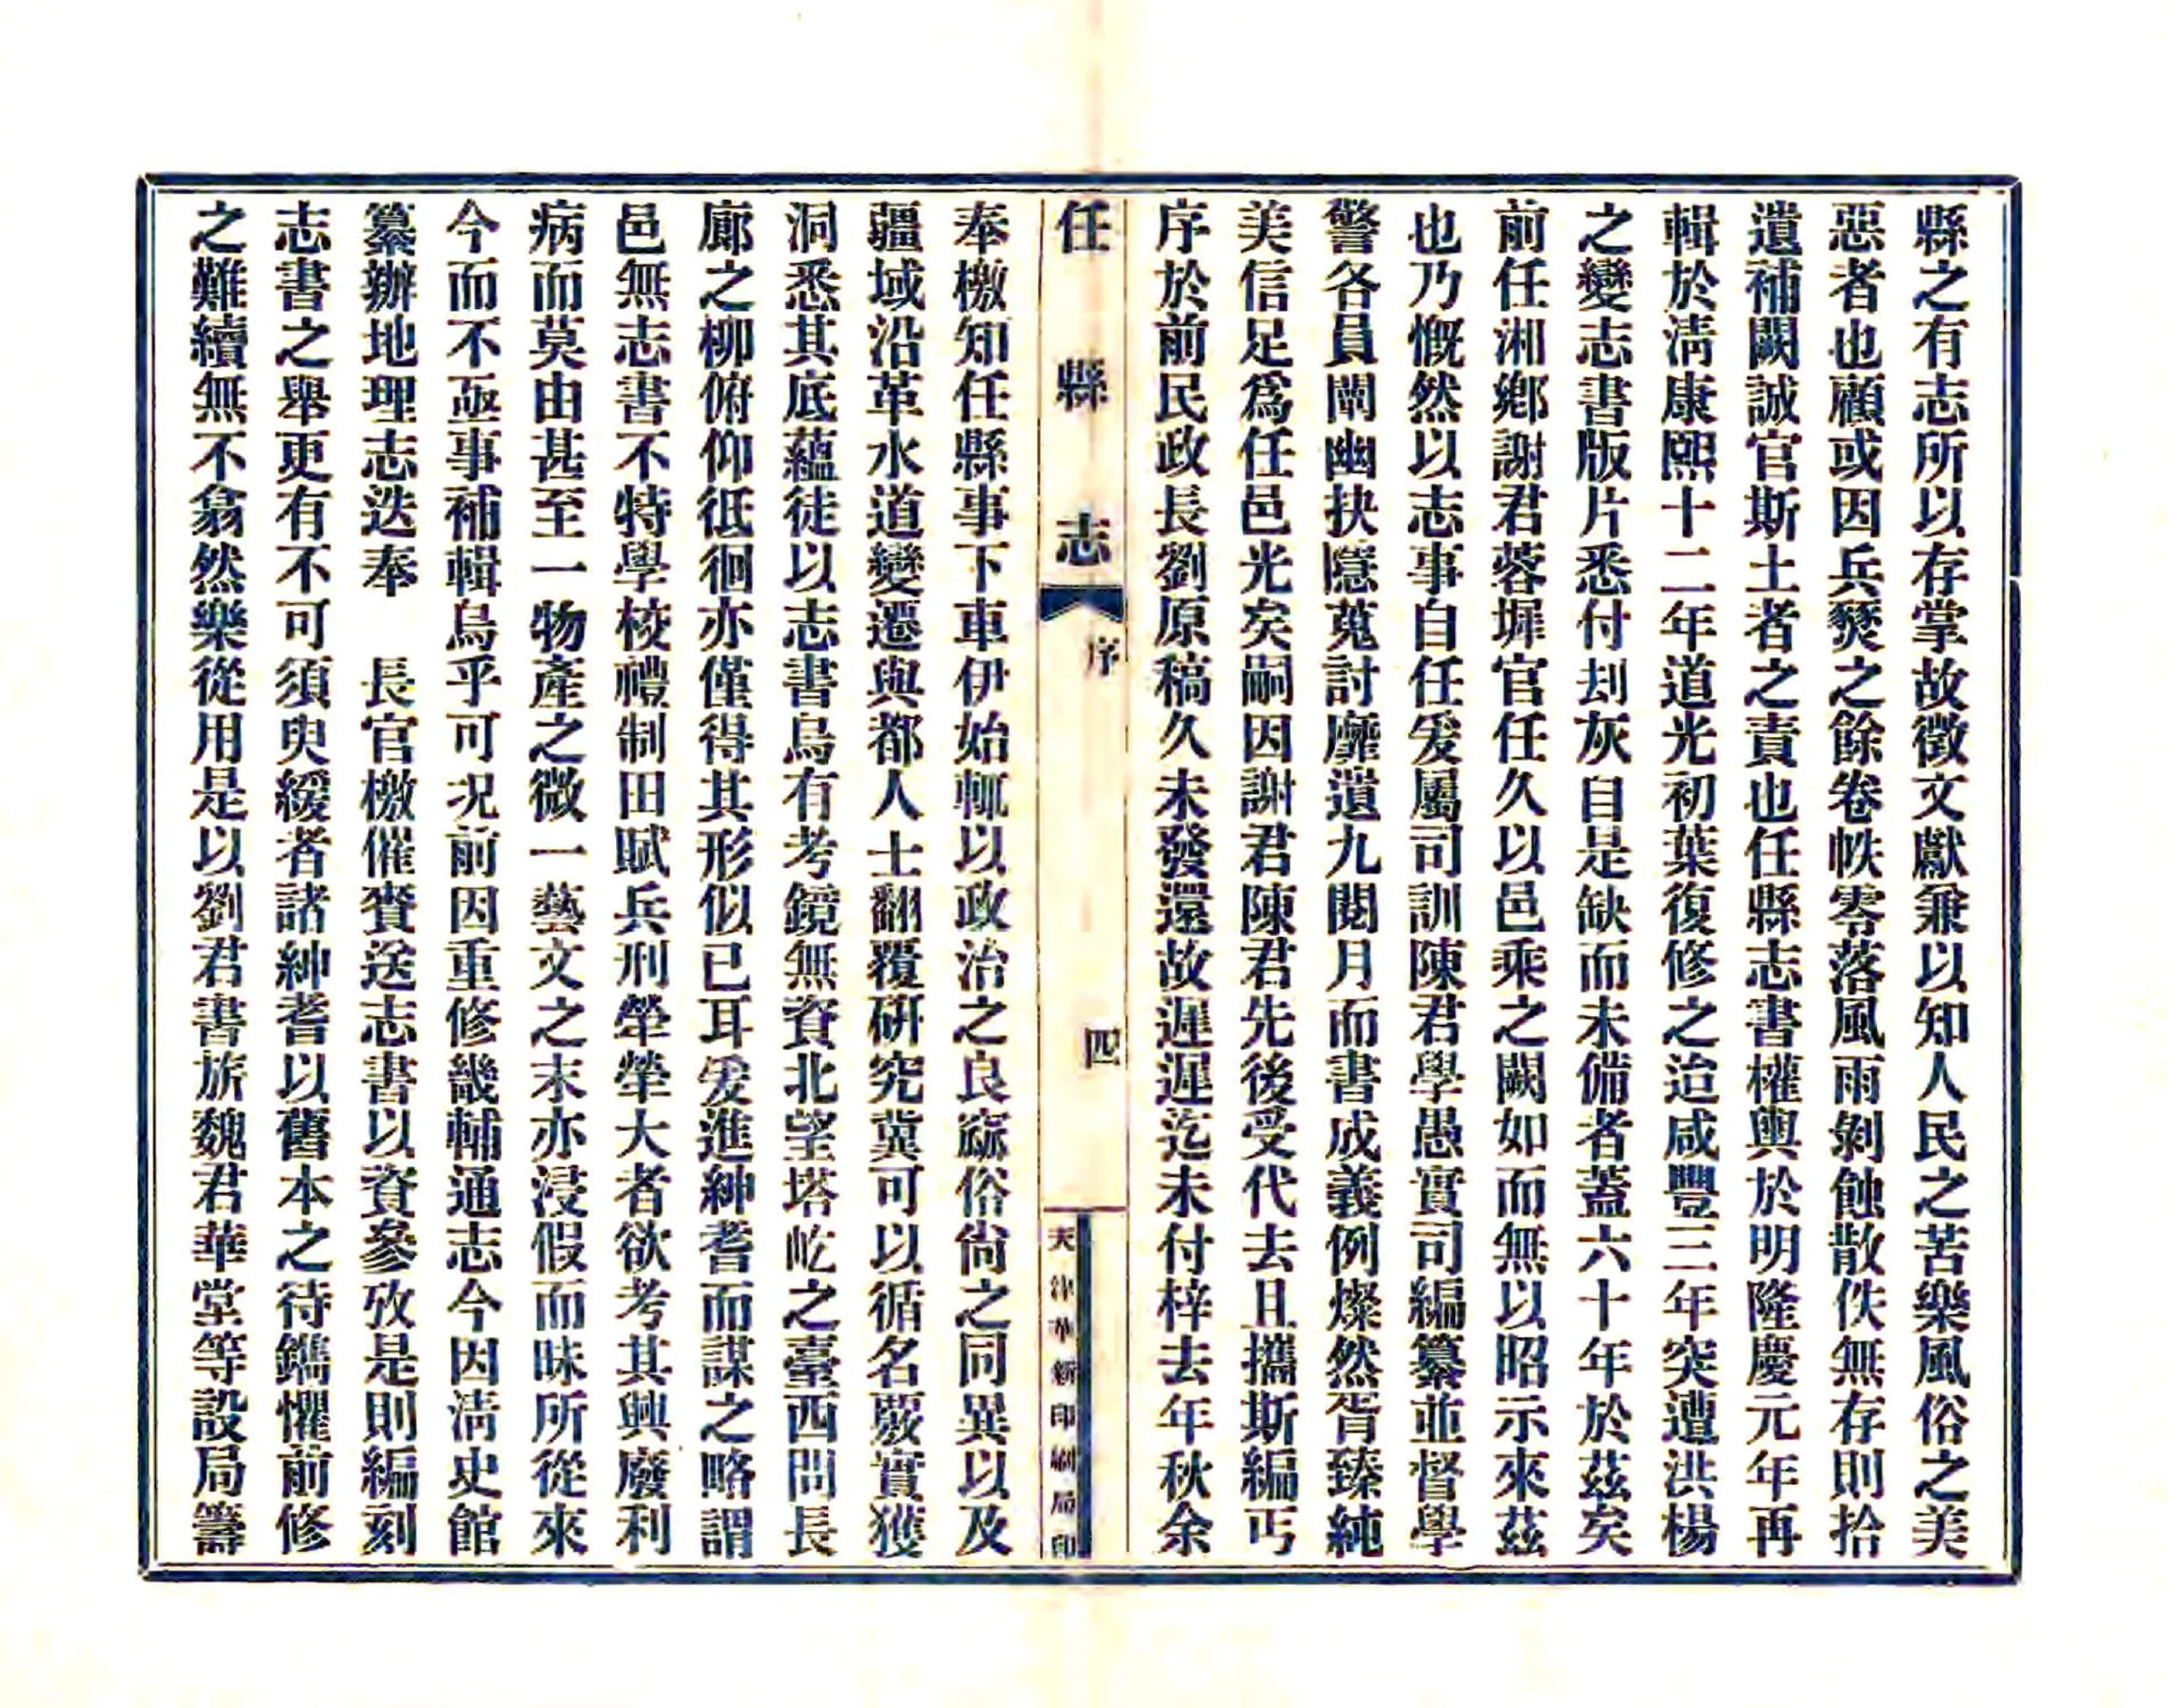 縣之有志所以存掌故徵文獻兼以知人民之苦樂風俗之美
惡者也顧或因兵燹之餘卷帙零落風雨剝蝕散佚無存則拾
遺補闕誠官斯土者之責也任縣志書權輿於明隆慶元年再
輯於淸康熙十二年道光初葉復修之迨咸豐三年突遭洪楊
之變志書版片悉付刦灰自是缺而未備者蓋六十年於茲矣
前任湘鄕謝君蓉墀官任久以邑乘之闕如而無以昭示來茲
也乃慨然以志事自任爰屬司訓陳君學愚實司編纂並督學
警各員闡幽抉隱蒐討靡遺九閱月而書成義例燦然胥臻純
美信足爲任邑光矣嗣因謝君陳君先後受代去且攜斯編丐
序於前民政長劉原稿久未發還故遲遲迄未付梓去年秋余
任縣志
序
四
天津華新印刷局印
奉檄知任縣事下車伊始輒以政治之良窳俗尙之同異以及
疆域沿革水道變遷與都人士翻覆硏究冀可以循名覈實獲
洞悉其底蘊徒以志書烏有考鏡無資北望塔屹之臺西問長
廊之柳俯仰徘徊亦僅得其形似已耳爰進紳耆而謀之略謂
邑無志書不特學校禮制田賦兵刑犖犖大者欲考其興廢利
病而莫由甚至一物產之微一藝文之末亦浸假而昧所從來
今而不亟事補輯烏乎可况前因重修畿輔通志今因淸史館
纂辦地理志迭奉　長官檄催賫送志書以資參攷是則編刻
志書之舉更有不可須臾緩者諸紳耆以舊本之待鐫懼前修
之難續無不翕然樂從用是以劉君書旂魏君華堂等設局籌